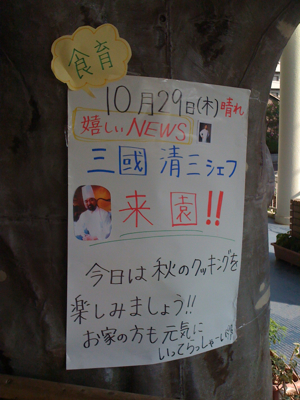 食育
10月29日(木)晴れ
嬉しいNEWS
三國 清三シェフ
来園!!
今日は秋のクッキングを
楽しみましょう!!
お家の方も元気に
いってらっしゃーい